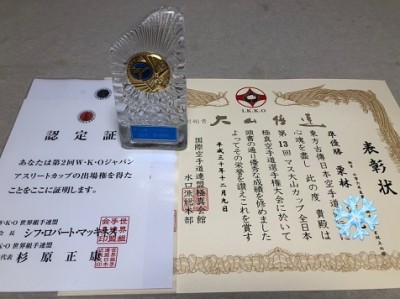 認定証
あなたは第2回W・K・Oジャパン
アスリートカップの出場権を得た
ことをここに証明します。
W・K・O 世界組手連盟
会長 シフ・ロバート・マッキネス
W・K・O 世界組手連盟
代表 杉原正康
I.K.K.O
大山倍達
表彰状
準優勝 栗林
貴殿は
東方古傳日本空手道
心魂を盡し 此の度
第13回マス大山カップ全日本
極真空手道選手権大会に於いて
頭書の通り優秀な成績を修めました
よってその栄誉を讃えこれを賞す
平成三十年十二月九日
国際空手道連盟極真会館
水口派総本部